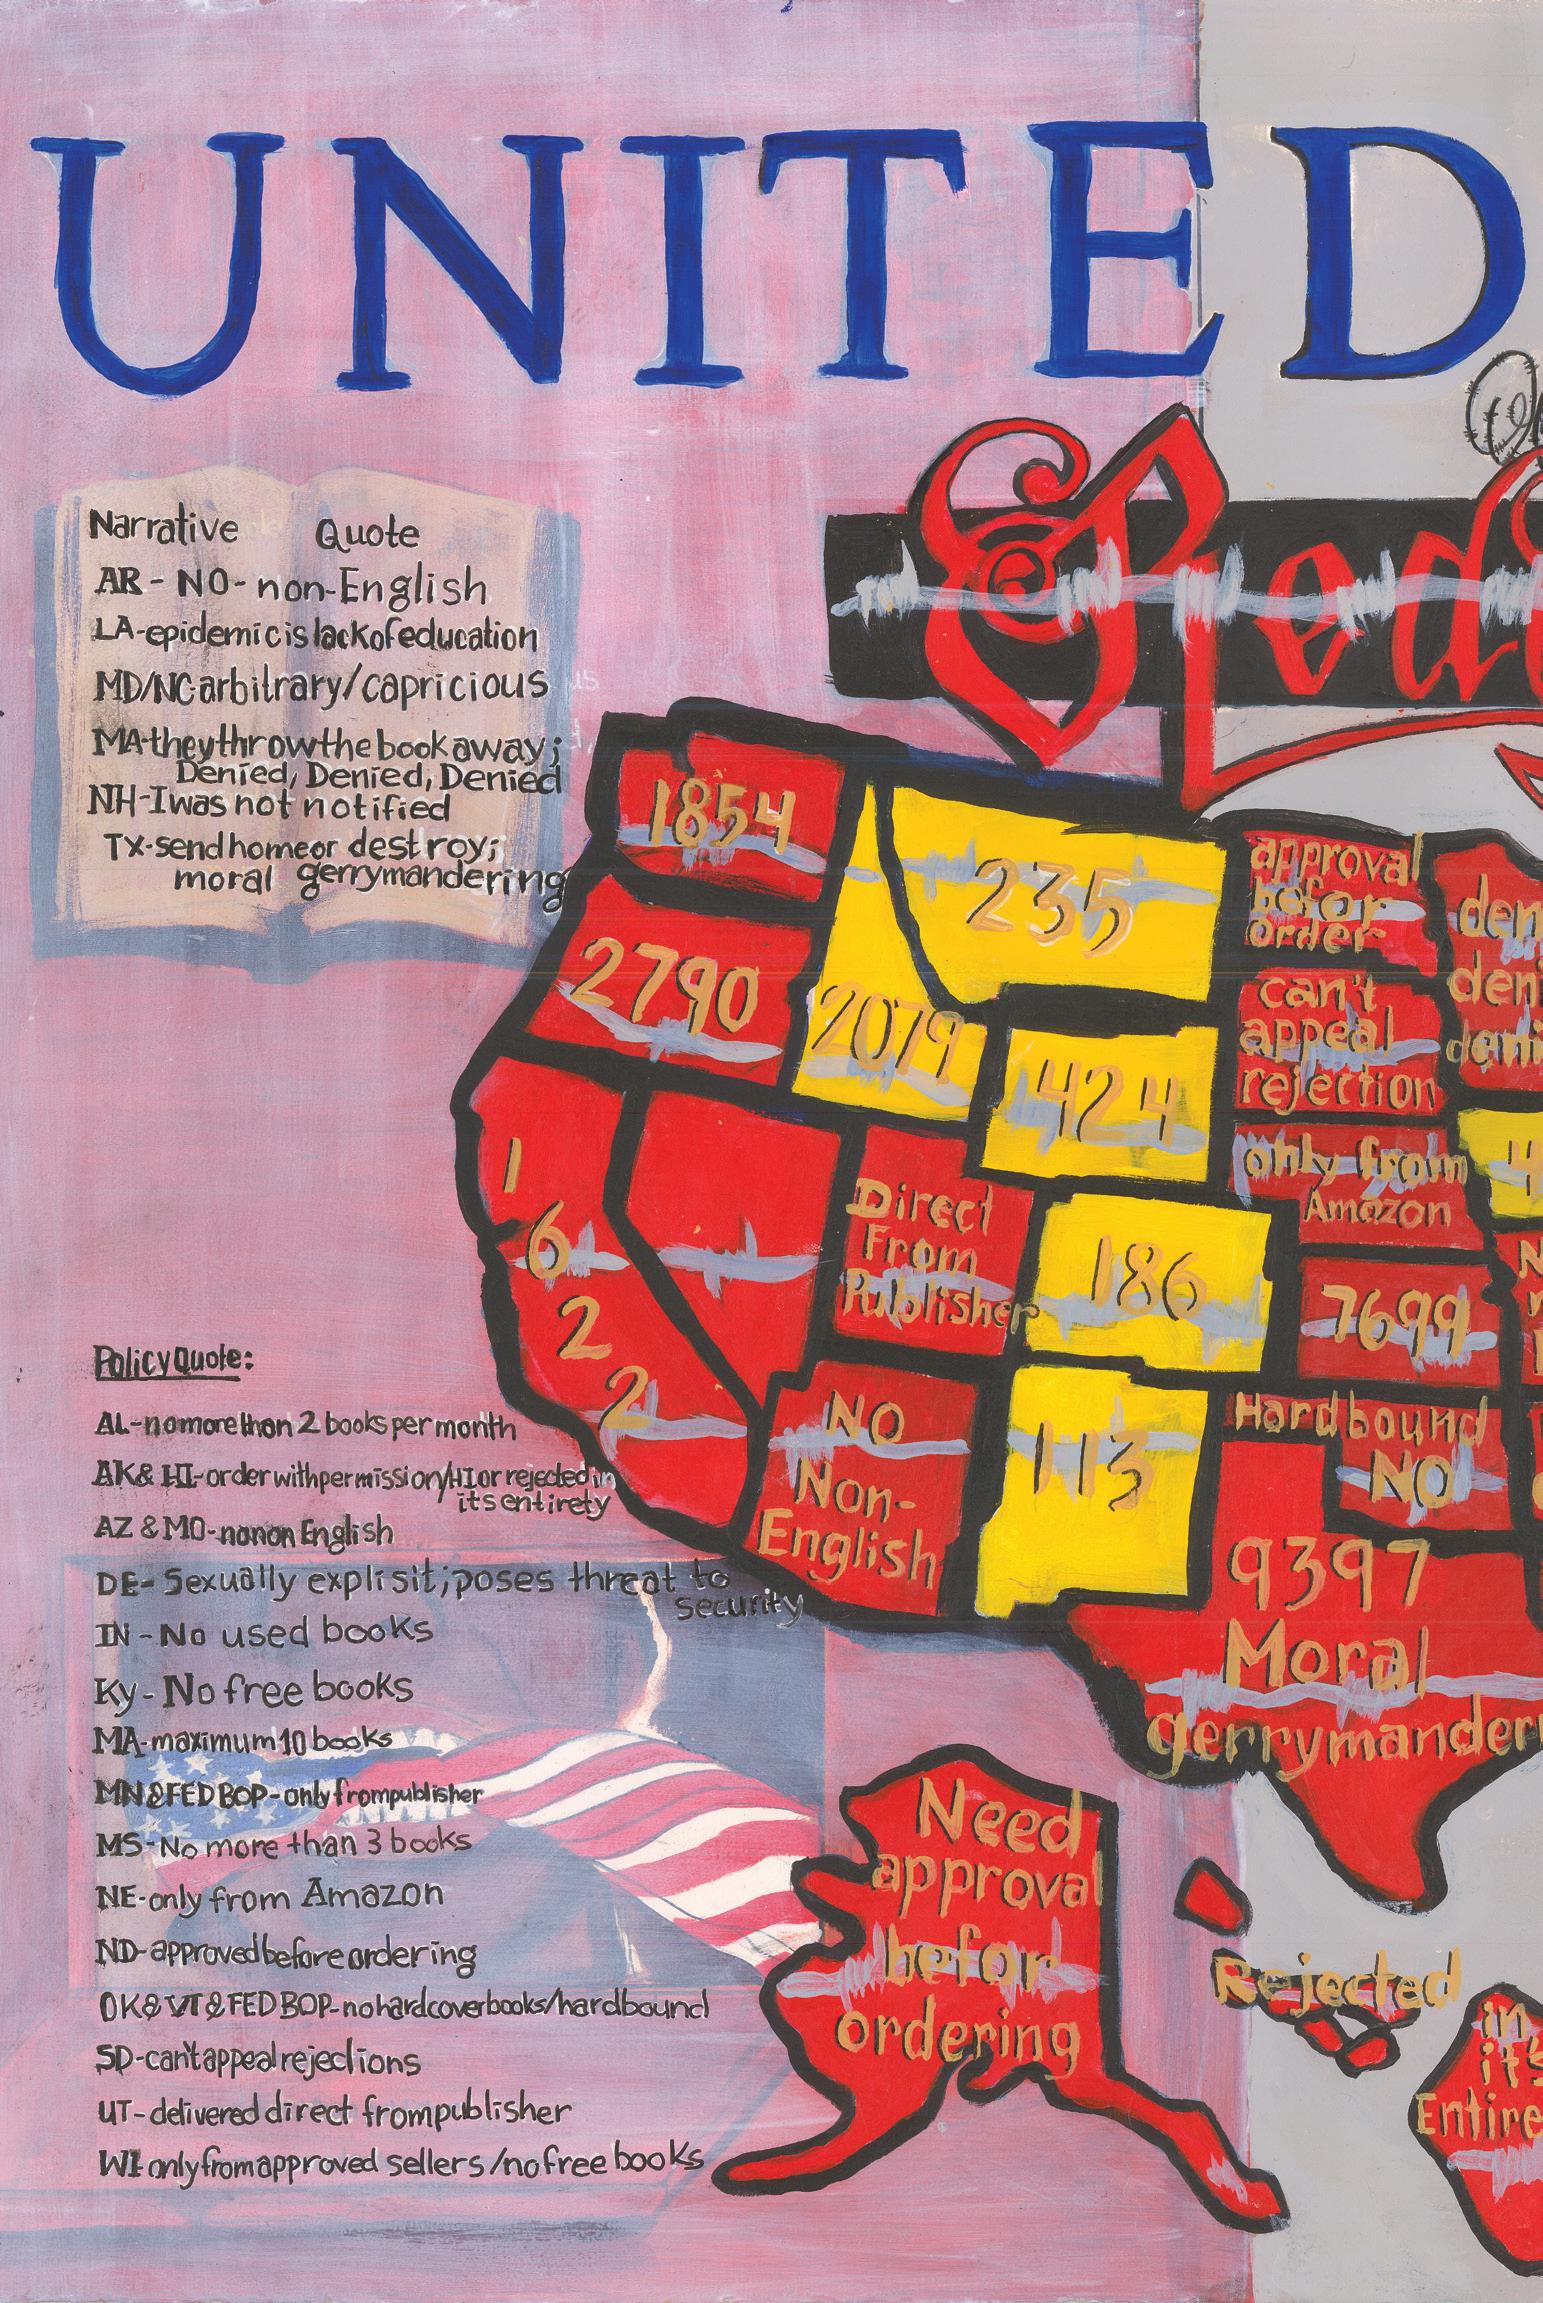 UNITED
Narrative Quote
AR - NO - non-English
LA-epidemic is lack of education
MD/NC-arbitrary/capricious
MA-they throw the book away;
Denied, Denied, Denied
NH-I was not notified
TX-send home or destroy;
moral gerrymandering
1854
2790
235
2079
424
1
6
2
2
Direct
From
Publisher
186
NO
Non-
English
113
approval
befor
order
can't
appeal
rejection
only from
Amazon
7699
Hardbound
NO
9397
Moral
gerrymander
Policy Quote:
AL-no more than 2 books per month
AK & HI-order with permission/HI or rejected in
its entirety
AZ & MO-no non English
DE- Sexually explisit; poses threat to
security
IN - No used books
Ky - No free books
MA-maximum 10 books
MN & FED BOP-only from publisher
MS-No more than 3 books
NE-only from Amazon
ND-approved before ordering
OK & VT & FED BOP-no hardcover books/hardbound
SD-can't appeal rejections
UT-delivered direct from publisher
WI-only from approved sellers/no free books
Need
approval
befor
ordering
Rejected
in
it's
Entire